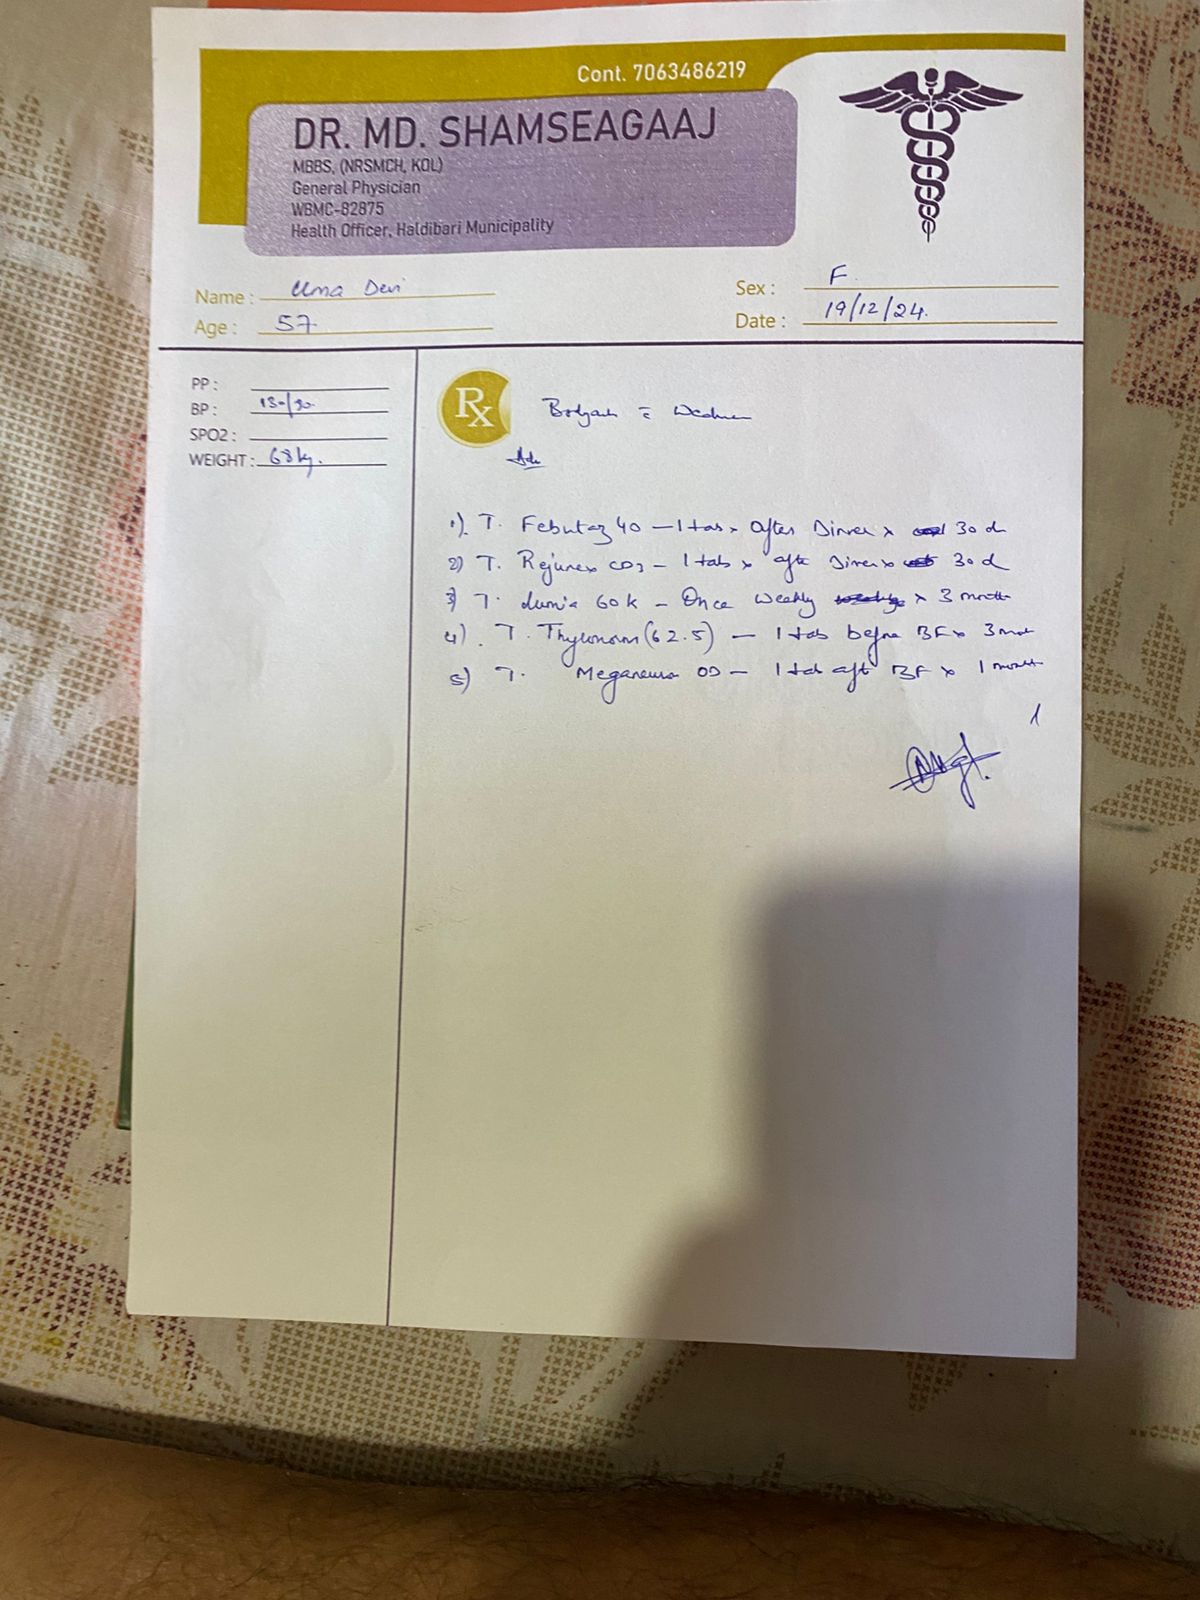 Cont. 7063486219
DR. MD. SHAMSEAGAAJ
MBBS, (NRSMCH, KOL)
General Physician
WBMC-82875
Health Officer, Haldibari Municipality
Name : Uma Devi
Sex : F
Age : 57
Date : 19/12/24.
PP :
BP : 130/90
SPO2 :
WEIGHT : 68 kg.
Rx
Adv
1) T. Febutaz 40 — 1 tab x After Dinner x 30 d
2) T. Rejunex CD3 — 1 tab x aftr Dinner x 30 d
3) T. Lumia 60 k — Once Weekly x 3 month
4) T. Thyronorm (62.5) — 1 tab before BF x 3 mont
5) T. Meganeuron OD — 1 tab aft BF x 1 month